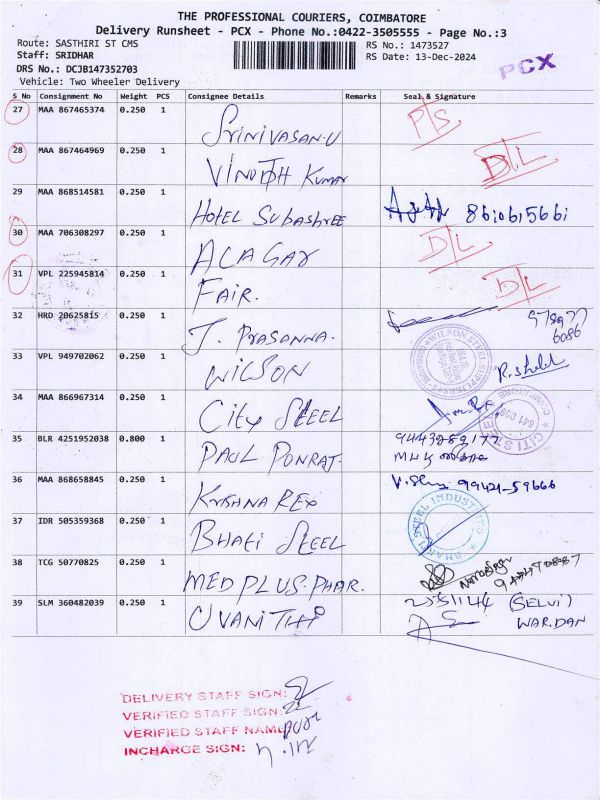 THE PROFESSIONAL COURIERS, COIMBATORE
Delivery Runsheet - PCX - Phone No.:0422-3505555 - Page No.:3
Route: SASTHIRI ST CMS
RS No.: 1473527
Staff: SRIDHAR
RS Date: 13-Dec-2024
DRS No.: DCJB147352703
PCX
Vehicle: Two Wheeler Delivery
S No Consignment No Weight PCS Consignee Details Remarks Seal & Signature
27 MAA 867465374 0.250 1 Srinivasan.U P/S.
28 MAA 867464969 0.250 1 Vinoth Kumar D/L
29 MAA 868514581 0.250 1 Hotel Subashree 8610615661
30 MAA 706308297 0.250 1 ALAGAR D/L
31 VPL 225945814 0.250 1 FAIR. D/L
32 HRD 20625815 0.250 1 J. Prasanna.
33 VPL 949702062 0.250 1 WILSON
34 MAA 866967314 0.250 1 City Steel
35 BLR 4251952038 0.800 1 PAUL PONRAJ.
36 MAA 868658845 0.250 1 Krishna Rex 99421-59666
37 IDR 505359368 0.250 1 Bhati Steel
38 TCG 50770825 0.250 1 MEDPLUS.PHAR.
39 SLM 360482039 0.250 1 UVANITHI (SELVI)
WARDAN
DELIVERY STAFF SIGN:
VERIFIED STAFF SIGN:
VERIFIED STAFF NAME
INCHARGE SIGN: